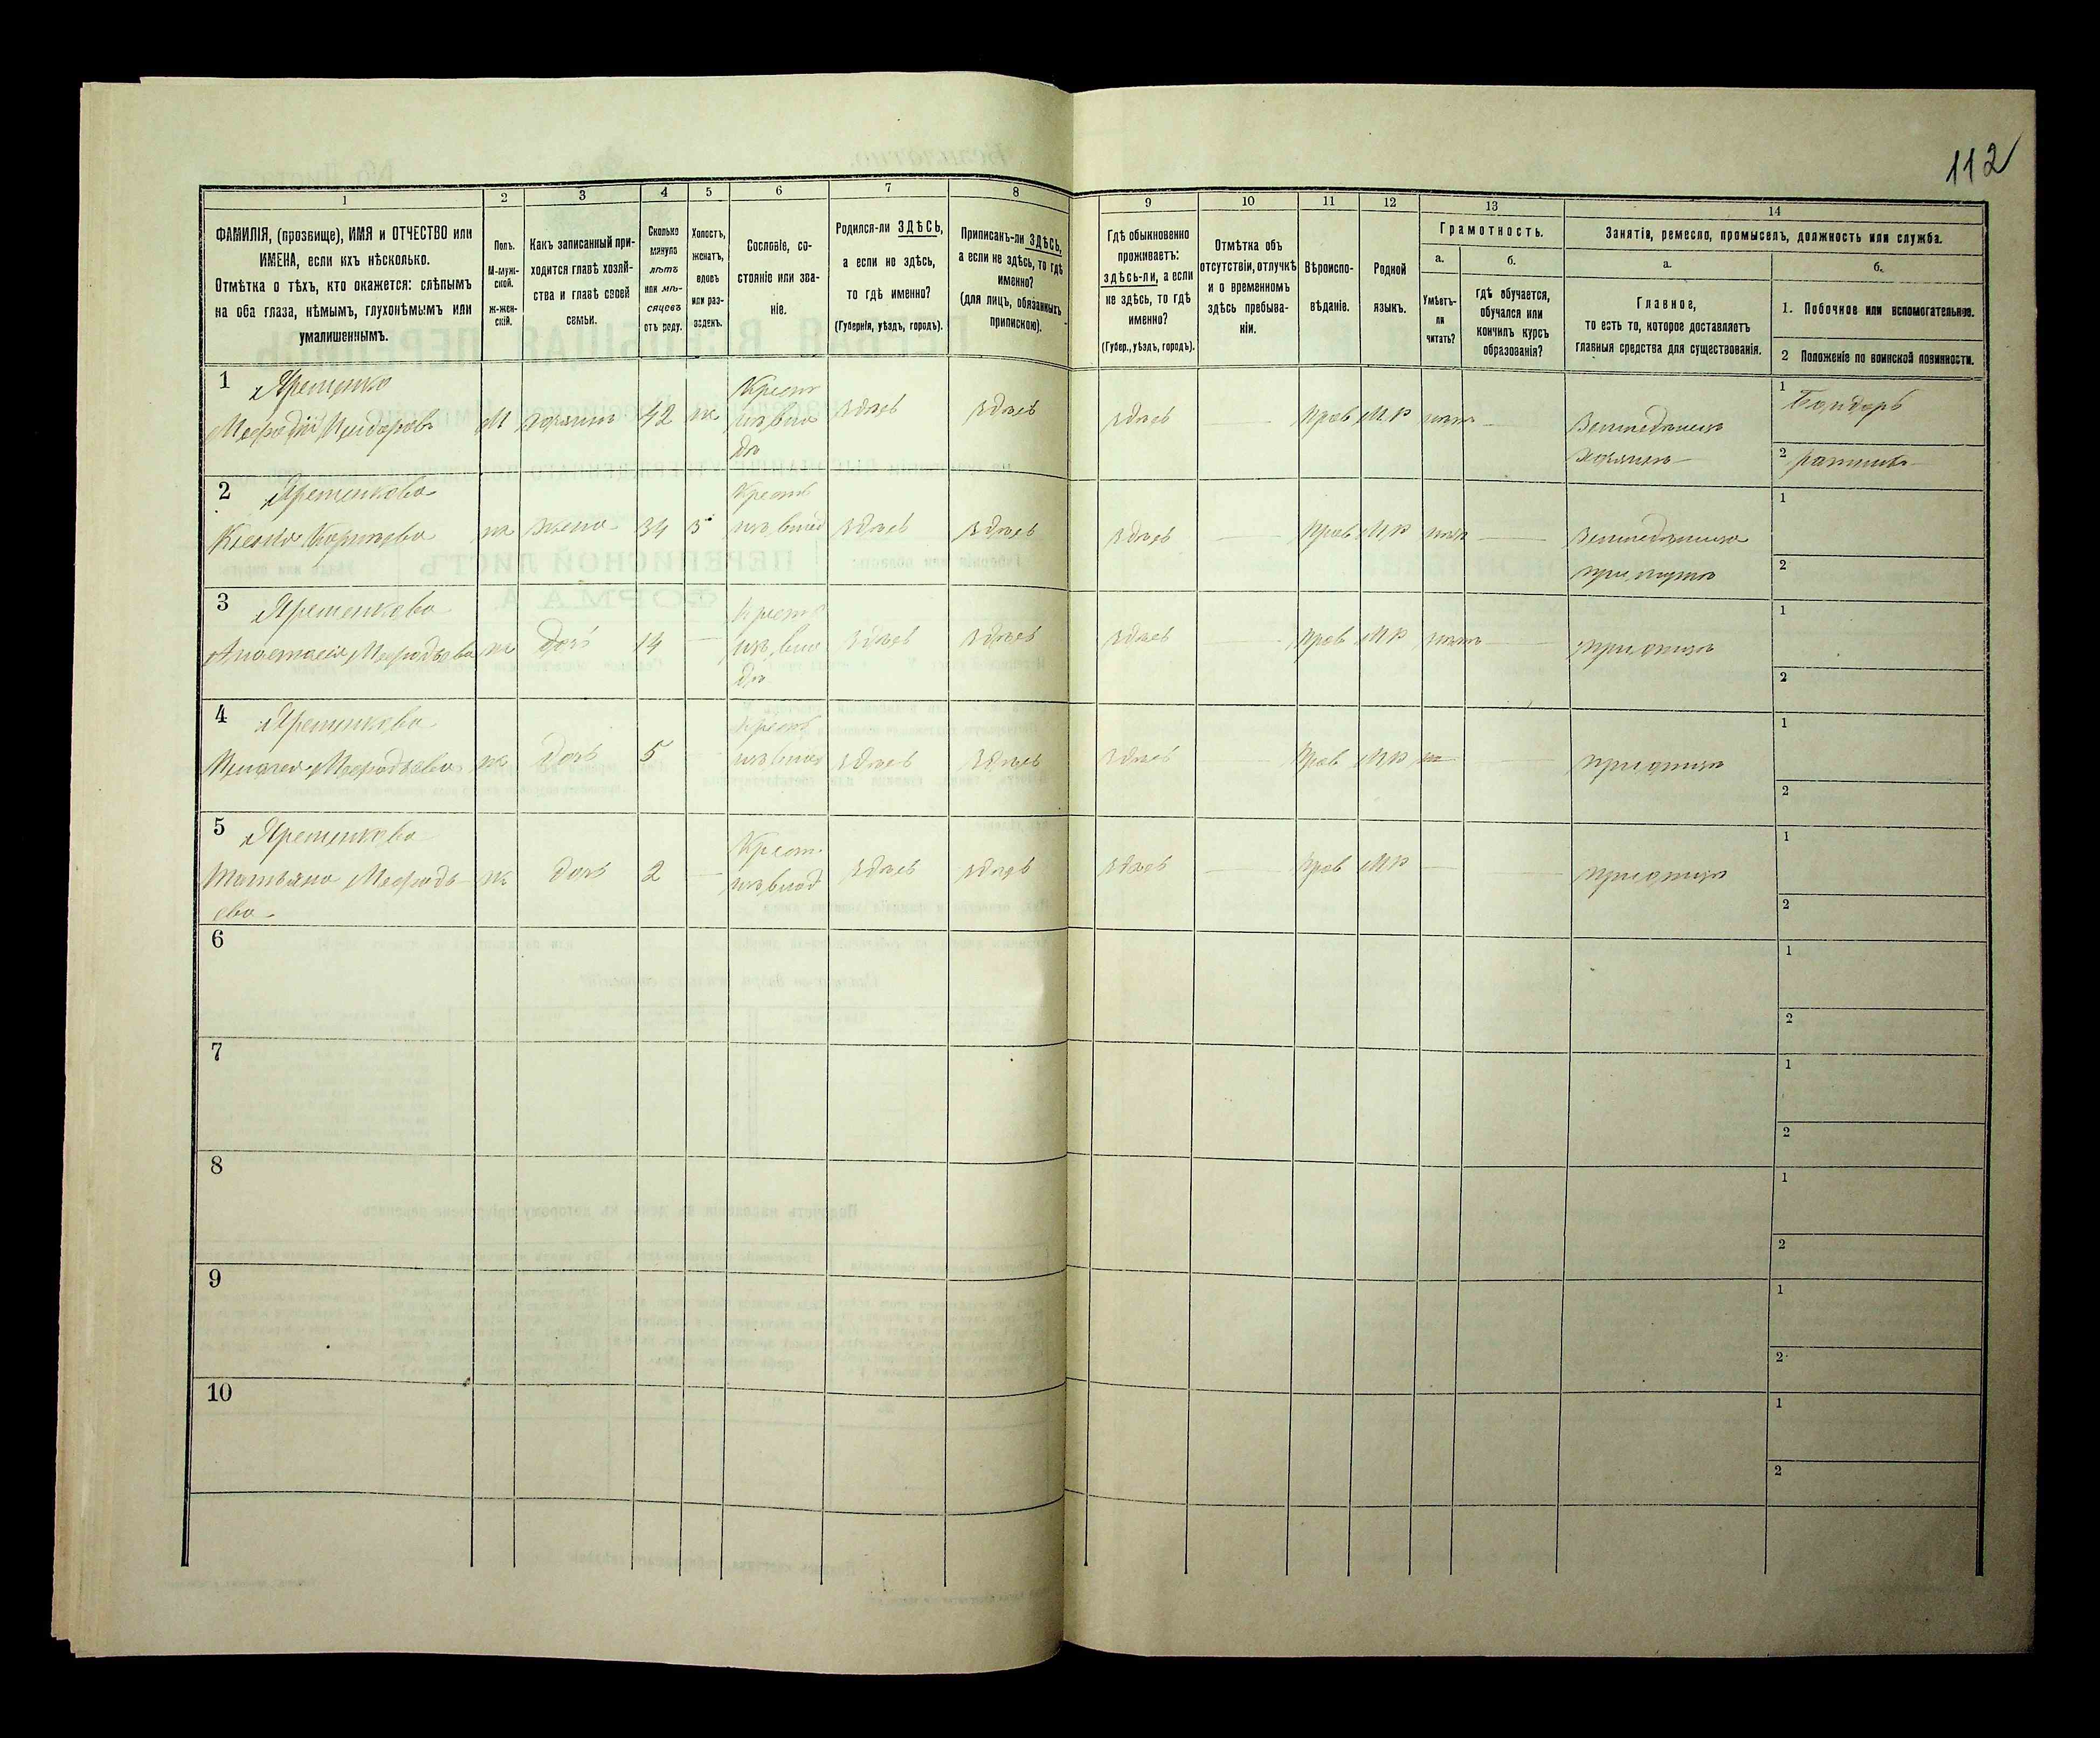 112
1
2
3
4
5
6
7
8
9
10
11
12
13
14
ФАМИЛІЯ, (прозвище), ИМЯ и ОТЧЕСТВО или
ИМЕНА, если ихъ нѣсколько.
Отмѣтка о тѣхъ, кто окажется: слѣпымъ
на оба глаза, нѣмымъ, глухонѣмымъ или
умалишеннымъ.
Полъ.
М-муж-
ской.
Ж-жен-
скій.
Какъ записанный при-
ходится главѣ хозяй-
ства и главѣ своей
семьи.
Сколько
минуло
лѣтъ
или мѣ-
сяцевъ
отъ роду.
Холостъ,
женатъ,
вдовъ
или раз-
веденъ.
Сословіе, со-
стояніе или зва-
ніе.
Родился-ли ЗДѢСЬ,
а если не здѣсь,
то гдѣ именно?
(Губернія, уѣздъ, городъ).
Приписанъ-ли ЗДѢСЬ,
а если не здѣсь, то гдѣ
именно?
(для лицъ, обязанныхъ
припискою).
Гдѣ обыкновенно
проживаетъ:
здѣсь-ли, а если
не здѣсь, то гдѣ
именно?
(Губер., уѣздъ, городъ).
Отмѣтка объ
отсутствіи, отлучкѣ
и о временномъ
здѣсь пребыва-
ніи.
Вѣроиспо-
вѣданіе.
Родной
языкъ.
Грамотность.
а.
Умѣетъ-
ли
читать?
б.
гдѣ обучается,
обучался или
кончилъ курсъ
образованія?
Занятія, ремесло, промыселъ, должность или служба.
а.
Главное,
то есть то, которое доставляетъ
главныя средства для существованія.
б.
1. Побочное или вспомогательное.
2 Положеніе по воинской повинности.
1 Яременко
Мефодій
М хозяинъ 42 ж
Крест
здѣсь здѣсь здѣсь — Прав М.р нѣтъ —
Земледѣлецъ
хозяинъ
1 Бондарь
2 ратникъ
2 Яременкова
Ксенія
ж жена 34 з
Крест
здѣсь здѣсь здѣсь — Прав М.р нѣтъ —
при мужѣ
1
2
3 Яременкова
Анастасія Мефодьева
ж дочь 14 —
Крест
здѣсь здѣсь здѣсь — Прав М.р нѣтъ —
при отцѣ
1
2
4 Яременкова
Мефодьева
ж дочь 5 —
Крест
здѣсь здѣсь здѣсь — Прав М.р —
при отцѣ
1
2
5 Яременкова
Татьяна Мефодь-
ева
ж дочь 2 —
Крест.
здѣсь здѣсь здѣсь — Прав М.р — —
при отцѣ
1
2
6
1
2
7
1
2
8
1
2
9
1
2
10
1
2